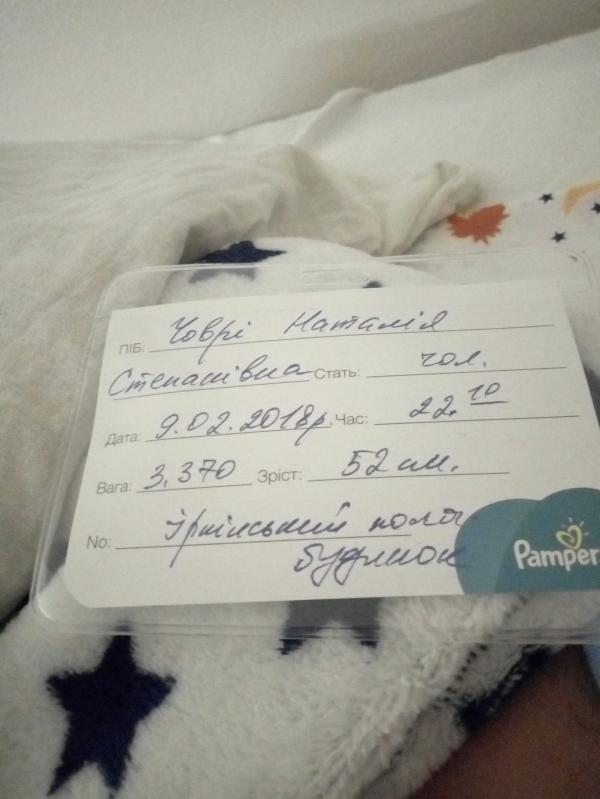 ПІБ: Човрі Наталія
Степанівна Стать: чол.
Дата: 9.02.2018р. Час: 22.10
Вага: 3.370 Зріст: 52 см.
No: Ірпінський пол.
будинок
Pampers